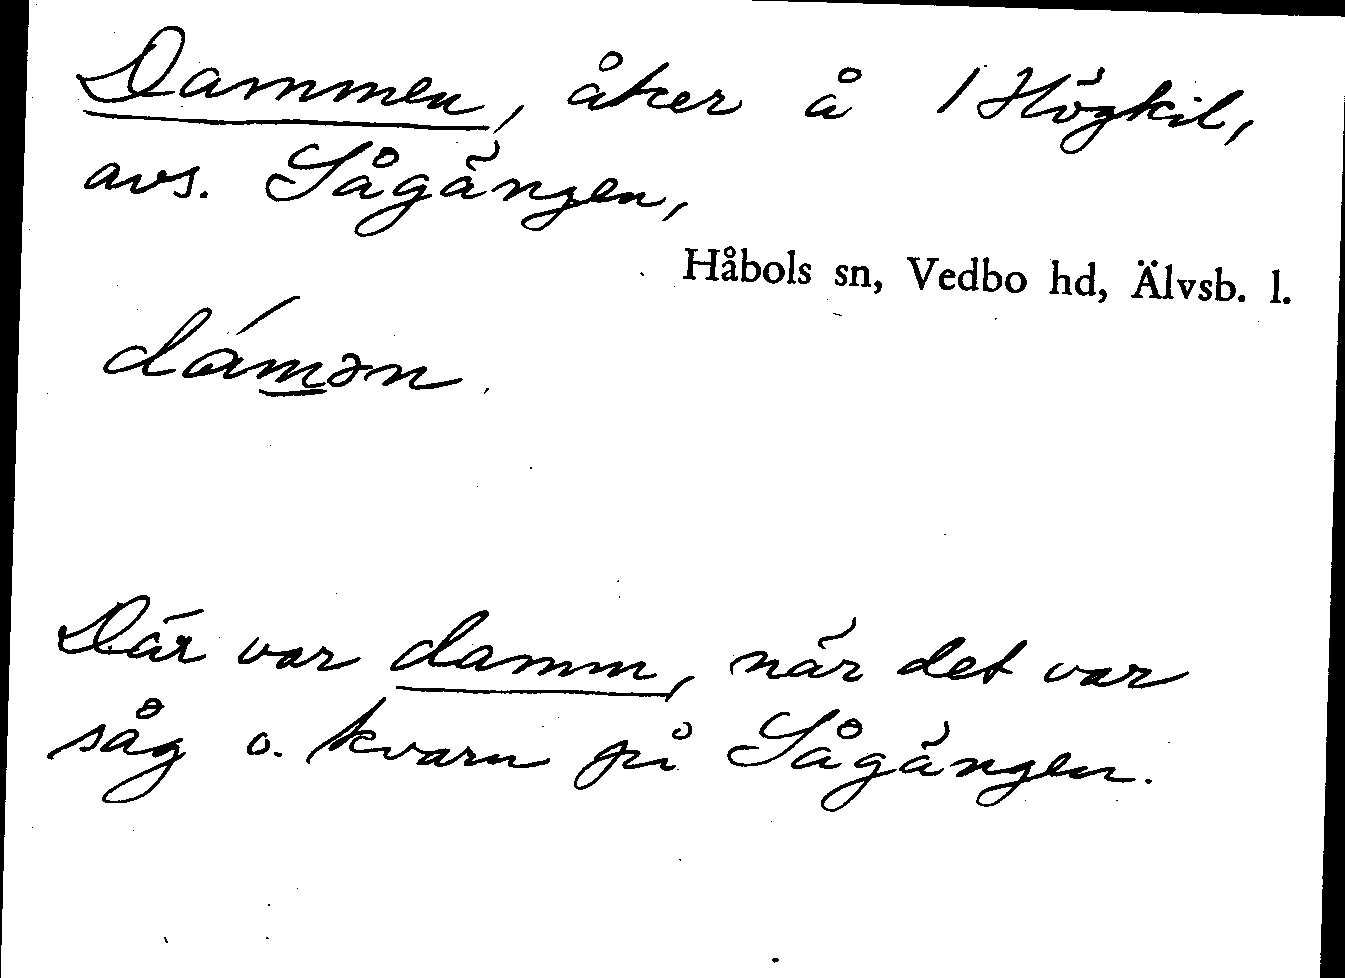 Dammen, åker å 1 Högkil,
avs. Sågängen,
Håbols sn, Vedbo hd, Älvsb. l.
dámən.
Där var damm, när det var
såg o. kvarn på Sågängen.